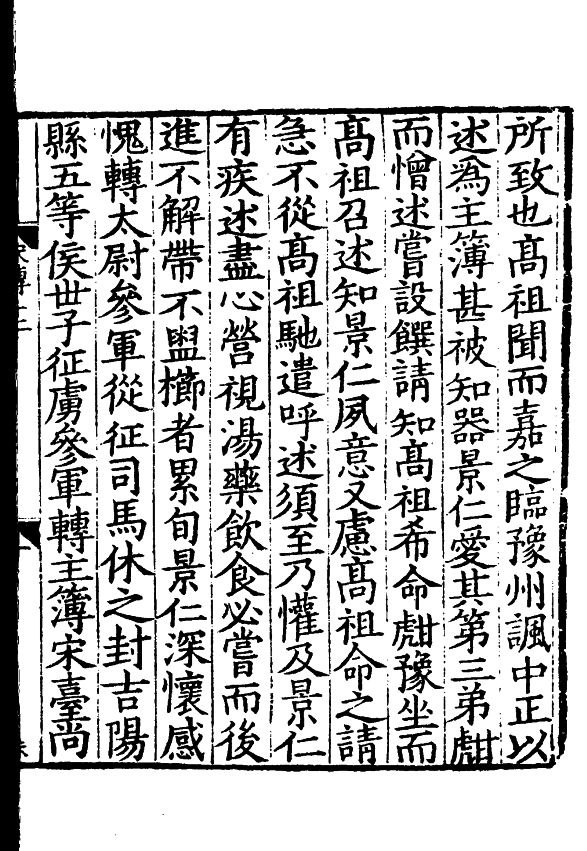 所致也髙祖聞而嘉之臨豫州諷中正以
述爲主簿甚被知器景仁愛其第三弟甝
而憎述嘗設饌請知髙祖希命甝豫坐而
髙祖召述知景仁夙意又慮髙祖命之請
急不從髙祖馳遣呼述須至乃懽及景仁
有疾述盡心營視湯藥飲食必嘗而後
進不解帶不盥櫛者累旬景仁深懷感
愧轉太尉參軍從征司馬休之封吉陽
縣五等侯世子征虜參軍轉主簿宋臺尚